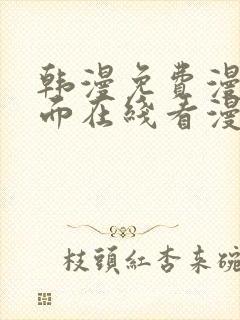 韩漫免費漫
而在线看漫
枝頭紅杏来碗